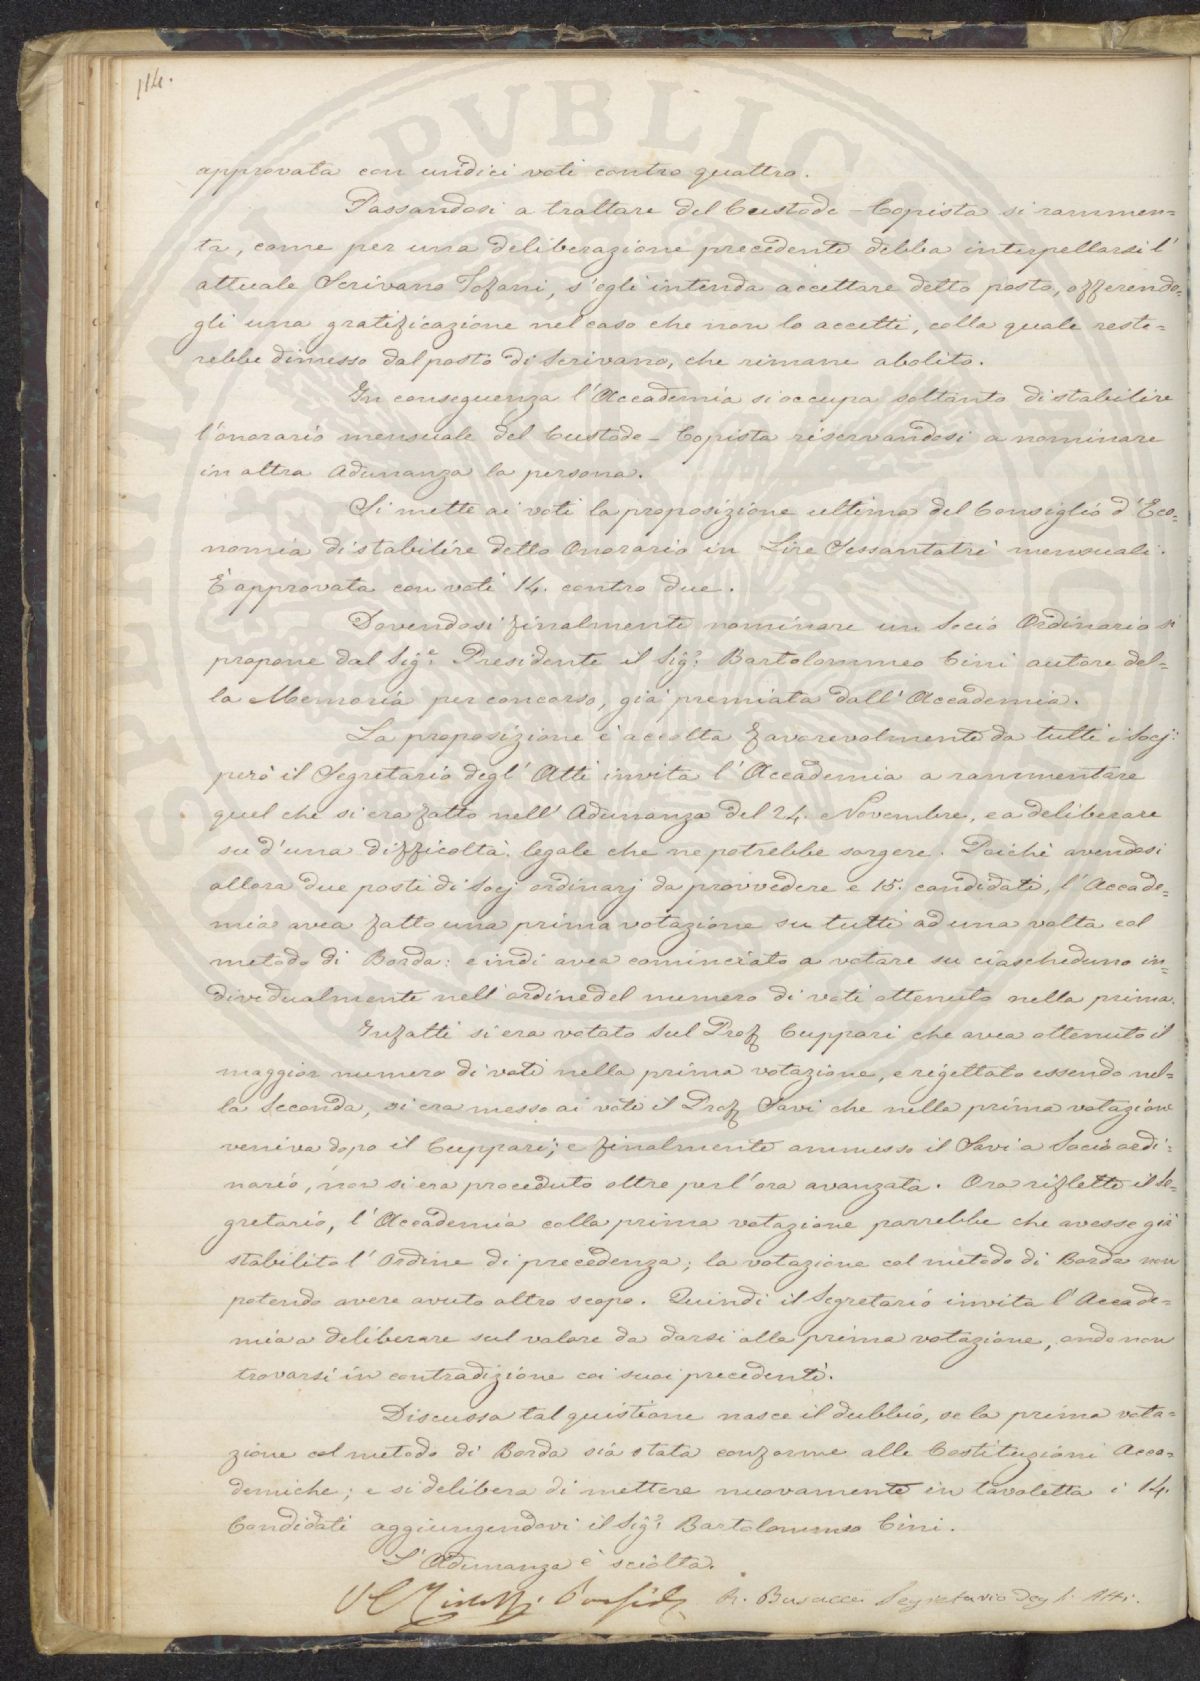 114.
approvata con undici voti contro quattro.
Passandosi a trattare del Custode-Copista si rammen=
ta, come per una deliberazione precedente debba interpellarsi l'
attuale Scrivano Tofani, s'egli intenda accettare detto posto, offerendo=
gli una gratificazione nel caso che non lo accetti, colla quale reste=
rebbe dimesso dal posto di Scrivano, che rimane abolito.
In conseguenza l'Accademia si occupa soltanto di stabilire
l'onorario mensuale del Custode-Copista riservandosi a nominare
in altra Adunanza la persona.
Si mette ai voti la proposizione ultima del Consiglio d'Eco=
nomia di stabilire detto Onorario in Lire Sessantatrè mensuali.
È approvata con voti 14. contro due.
Dovendosi finalmente nominare un Socio Ordinario si
propone dal Sigr. Presidente il Sigr. Bartolommeo Cini autore del=
la Memoria per concorso, già premiata dall'Accademia.
La proposizione è accolta favorevolmente da tutti i Socj:
però il Segretario degl'Atti invita l'Accademia a rammentare
quel che si era fatto nell'Adunanza del 24. Novembre, e a deliberare
su d'una difficoltà legale che ne potrebbe sorgere. Poichè avendosi
allora due posti di Socj ordinarj da provvedere e 15. candidati, l'Accade=
mia avea fatto una prima votazione su tutti ad una volta col
metodo di Borda: e indi avea cominciato a votare su ciascheduno in=
dividualmente nell'ordine del numero di voti ottenuto nella prima.
Infatti si era votato sul Prof. Cuppari che avea ottenuto il
maggior numero di voti nella prima votazione, e rigettato essendo nel=
la Seconda, si era messo ai voti il Prof. Savi che nella prima votazione
veniva dopo il Cuppari; e finalmente ammesso il Savi a Socio ordi=
nario, non si era proceduto oltre per l'ora avanzata. Ora riflette il Se=
gretario, l'Accademia colla prima votazione parrebbe che avesse già
stabilito l'Ordine di precedenza; la votazione col metodo di Borda non
potendo avere avuto altro scopo. Quindi il Segretario invita l'Accade=
mia a deliberare sul valore da darsi alla prima votazione, onde non
trovarsi in contradizione coi suoi precedenti.
Discussa tal quistione nasce il dubbio, se la prima vota=
zione col metodo di Borda sia stata conforme alle Costituzioni Acca=
demiche; e si delibera di mettere nuovamente in tavoletta i 14.
Candidati aggiungendovi il Sigr. Bartolommeo Cini.
L'Adunanza è sciolta.
R. Busacca Segretario degli Atti.